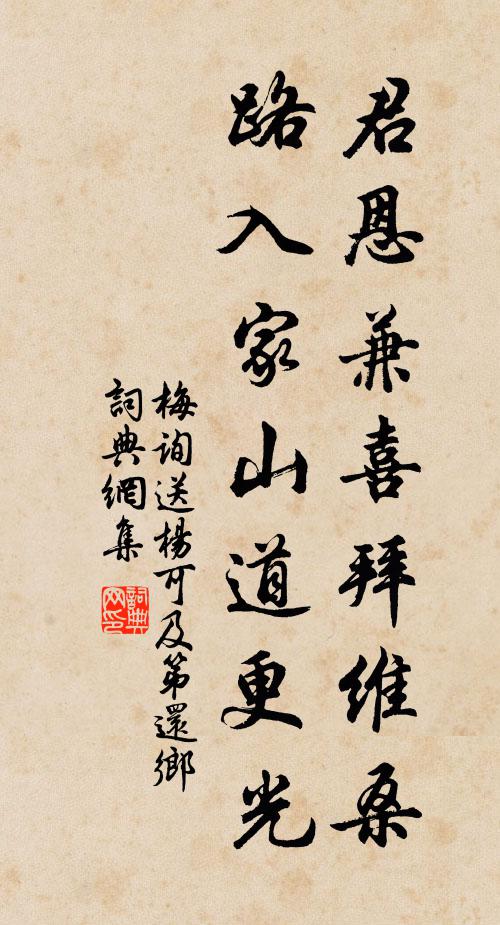 君恩兼喜拜維桑
路入家山道更光
梅詢送楊可及第還鄉
詞典網集
詞典
网印